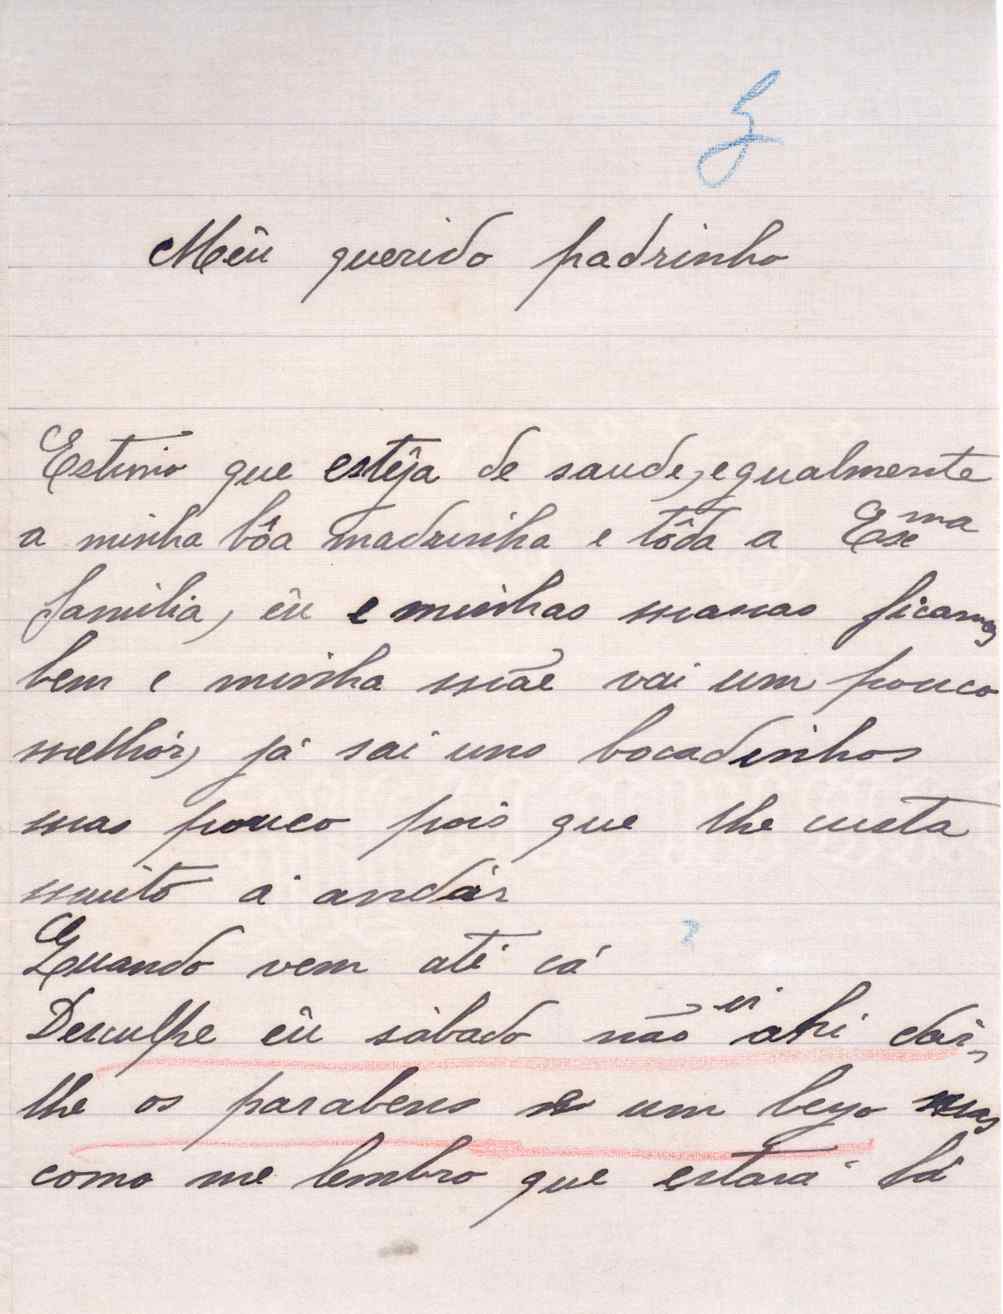 Mêu querido padrinho
Estimo que estêja de saude, egualmente
a minha bôa madrinha e tôda a Exma
familia, êu e minhas manas ficamos
bem e minha mãe vai um pouco
melhór, já sai uns bocadinhos
mas pouco pois que lhe custa
muito a andár
Quando vem até cá ?
Desculpe êu sábado não ir ahi dár-
lhe os parabens e um beijo mas
como me lembro que estará lá